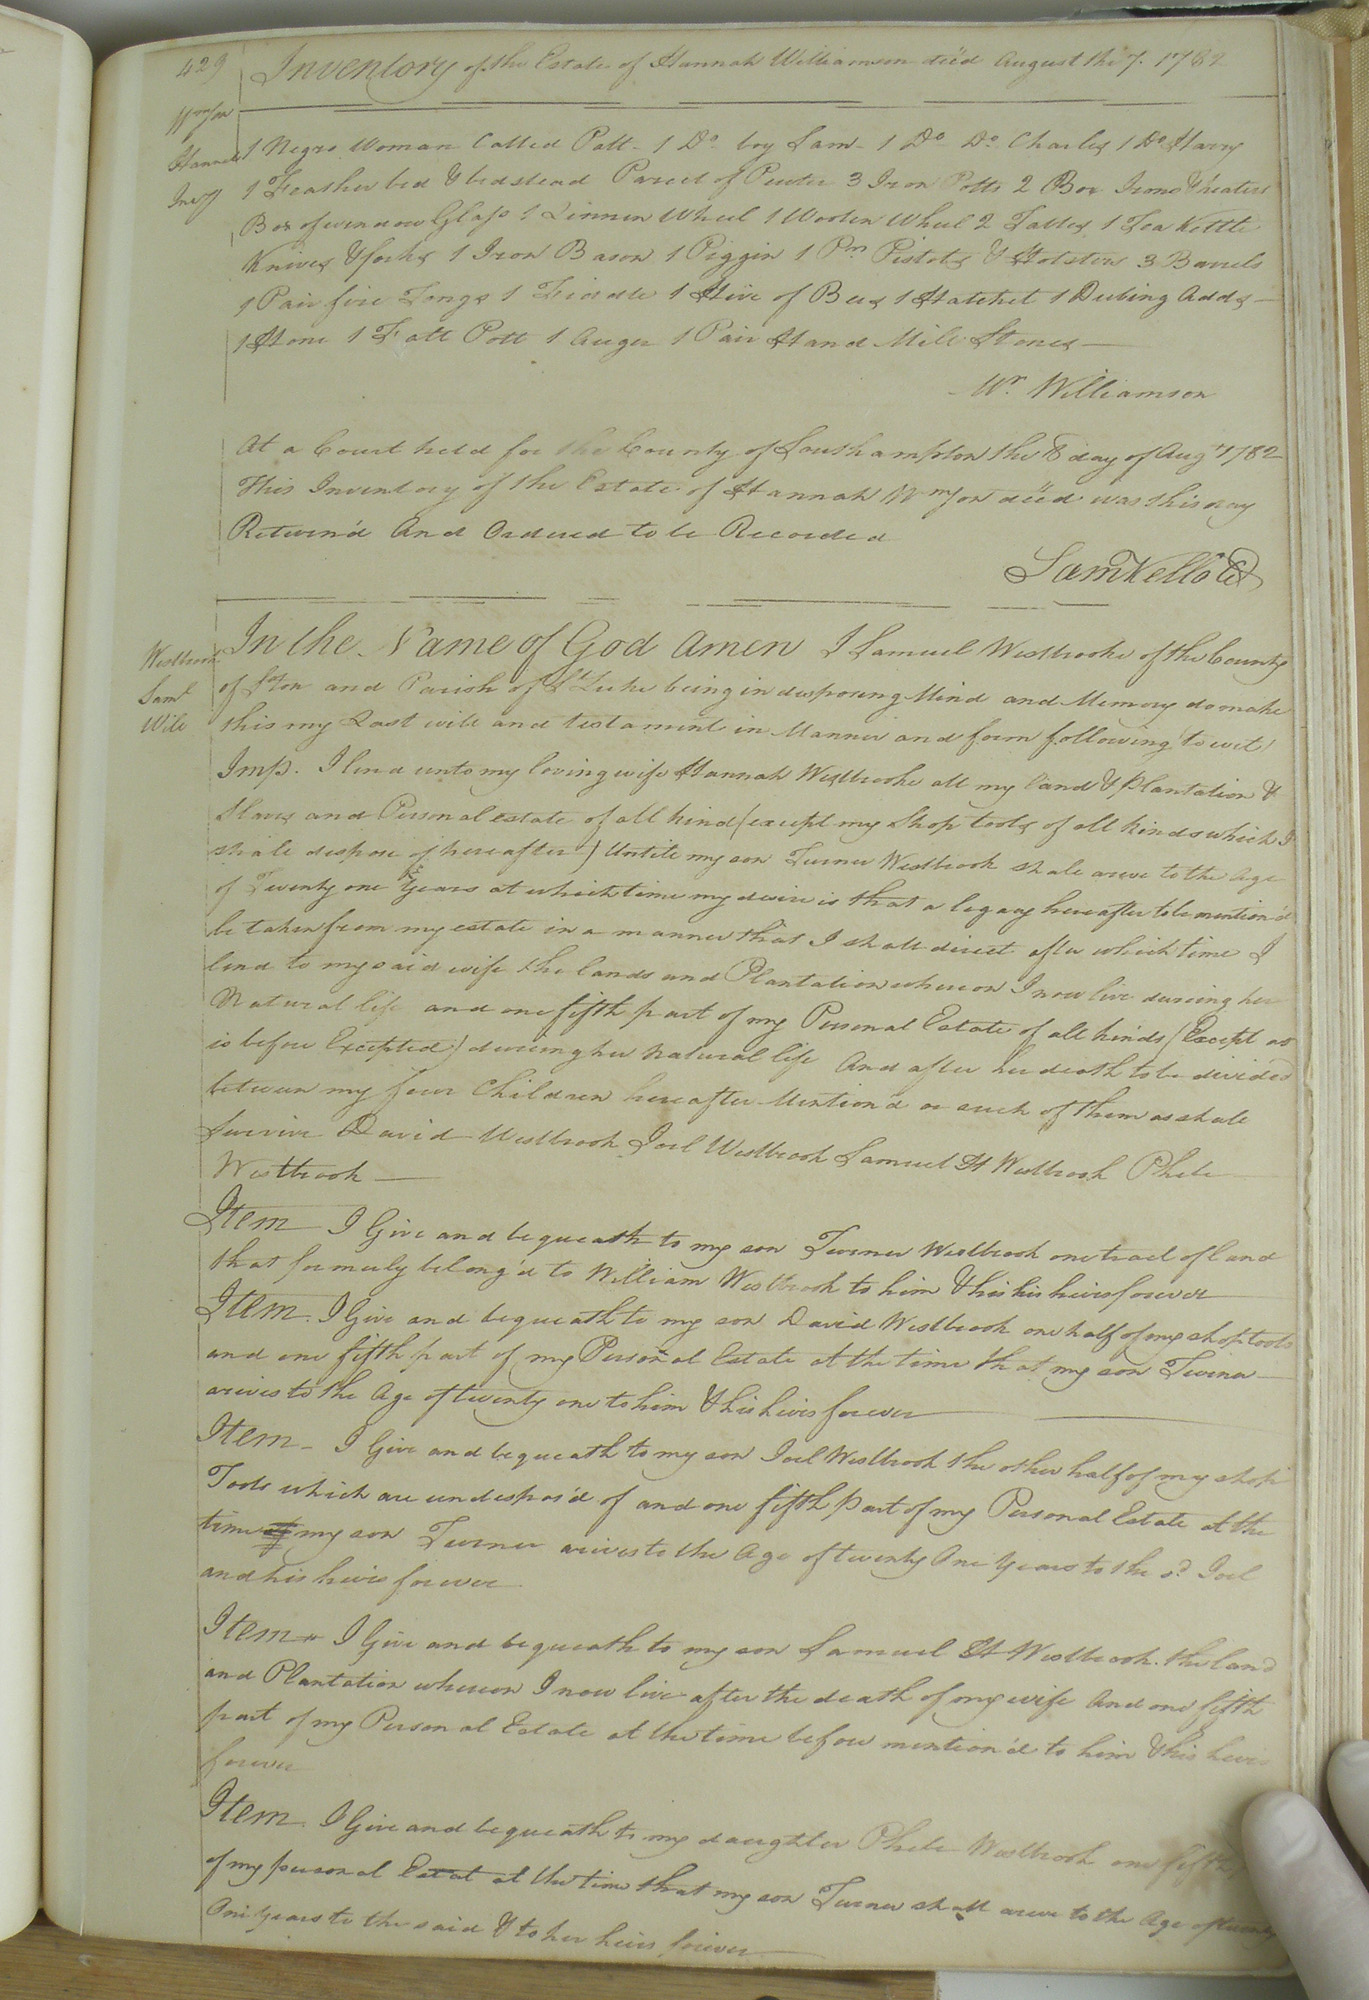 429
Inventory of the Estate of Hannah Williamson dec'd August the 7. 1782
Wmson
Hannah
Invy
1 Negro Woman Called Patt - 1 Do boy Sam - 1 Do Do Charles 1 Do Harry
1 Featherbed & bedstead Parcel of Puter 3 Iron Potts 2 Box Irons & heaters
Box of window Glass 1 Linnen Wheel 1 Woolen Wheel 2 Tables 1 Tea Kettle
Knives & forks 1 Iron Bason 1 Piggin 1 Pr Pistols & Holsters 3 Barrels
1 Pair fire Tongs 1 Fiddle 1 Hive of Bees 1 Hatchet 1 Dubing Adds
1 Hone 1 Fatt Pott 1 Auger 1 Pair Hand Mill Stones
Wm Williamson
At a Court held for the County of Southampton the 8 day of Augt 1782
This Inventory of the Estate of Hannah Wmson dec'd was this day
Return'd And Ordered to be Recorded
Saml Kello Ck
Westbrook
Saml
Will
In the Name of God Amen I Samuel Westbrooke of the County
of Sºton and Parish of St Luke being in desposing Mind and Memory do make
this my Last will and testament in Manner and form following (to wit)
Imp. I lend unto my loving wife Hannah Westbrooke all my land & Plantation &
Slaves and Personal estate of all kind (except my Shop tools of all kinds which I
shall dispose of hereafter) Untill my son Turner Westbrook shall arive to the Age
of Twenty one Years at which time my desire is that a legacy hereafter to be mention'd
be taken from my estate in a manner that I shall direct after which time I
lend to my said wife the lands and Plantation whereon I now live dureing her
Natural life and one fifth part of my Personal Estate of all kinds (Except as
is before Excepted) dureing her natural life And after her death to be divided
between my four Children hereafter Mention'd or such of them as shall
Survive David Westbrook Joel Westbrook Samuel H Westbrook Phebe
Westbrook
Item I Give and bequeath to my son Turner Westbrook one tract of land
that formerly belong'd to William Westbrook to him & his his heirs forever
Item. I Give and bequeath to my son David Westbrook one half of my shop tools
and one fifth part of my Personal Estate at the time that my son Turner
arives to the Age of twenty one to him & his heirs forever
Item - I Give and bequeath to my son Joel Westbrook the other half of my shop
Tools which are undespos'd of and one fifth part of my Personal Estate at the
time of my son Turner arives to the Age of twenty One Years to the sd. Joel
and his heirs forever
Item I Give and bequeath to my son Samuel H Westbrook the land
and Plantation whereon I now live after the death of my wife And one fifth
part of my Personal Estate at the time before mention'd to him & his heirs
forever
Item. I Give and bequeath to my daughter Phebe Westbrook one fifth
of my personal Estat at the time that my son Turner shall arive to the Age of twenty
One Years to the said & to her heirs forever